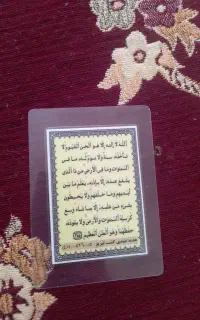 اللَّهُ لَا إِلَهَ إِلَّا هُوَ الْحَيُّ الْقَيُّومُ لَا
تَأْخُذُهُ سِنَةٌ وَلَا نَوْمٌ لَهُ مَا فِي
السَّمَاوَاتِ وَمَا فِي الْأَرْضِ مَنْ ذَا الَّذِي
يَشْفَعُ عِنْدَهُ إِلَّا بِإِذْنِهِ يَعْلَمُ مَا بَيْنَ
أَيْدِيهِمْ وَمَا خَلْفَهُمْ وَلَا يُحِيطُونَ
بِشَيْءٍ مِنْ عِلْمِهِ إِلَّا بِمَا شَاءَ وَسِعَ
كُرْسِيُّهُ السَّمَاوَاتِ وَالْأَرْضَ وَلَا يَئُودُهُ
حِفْظُهُمَا وَهُوَ الْعَلِيُّ الْعَظِيمُ